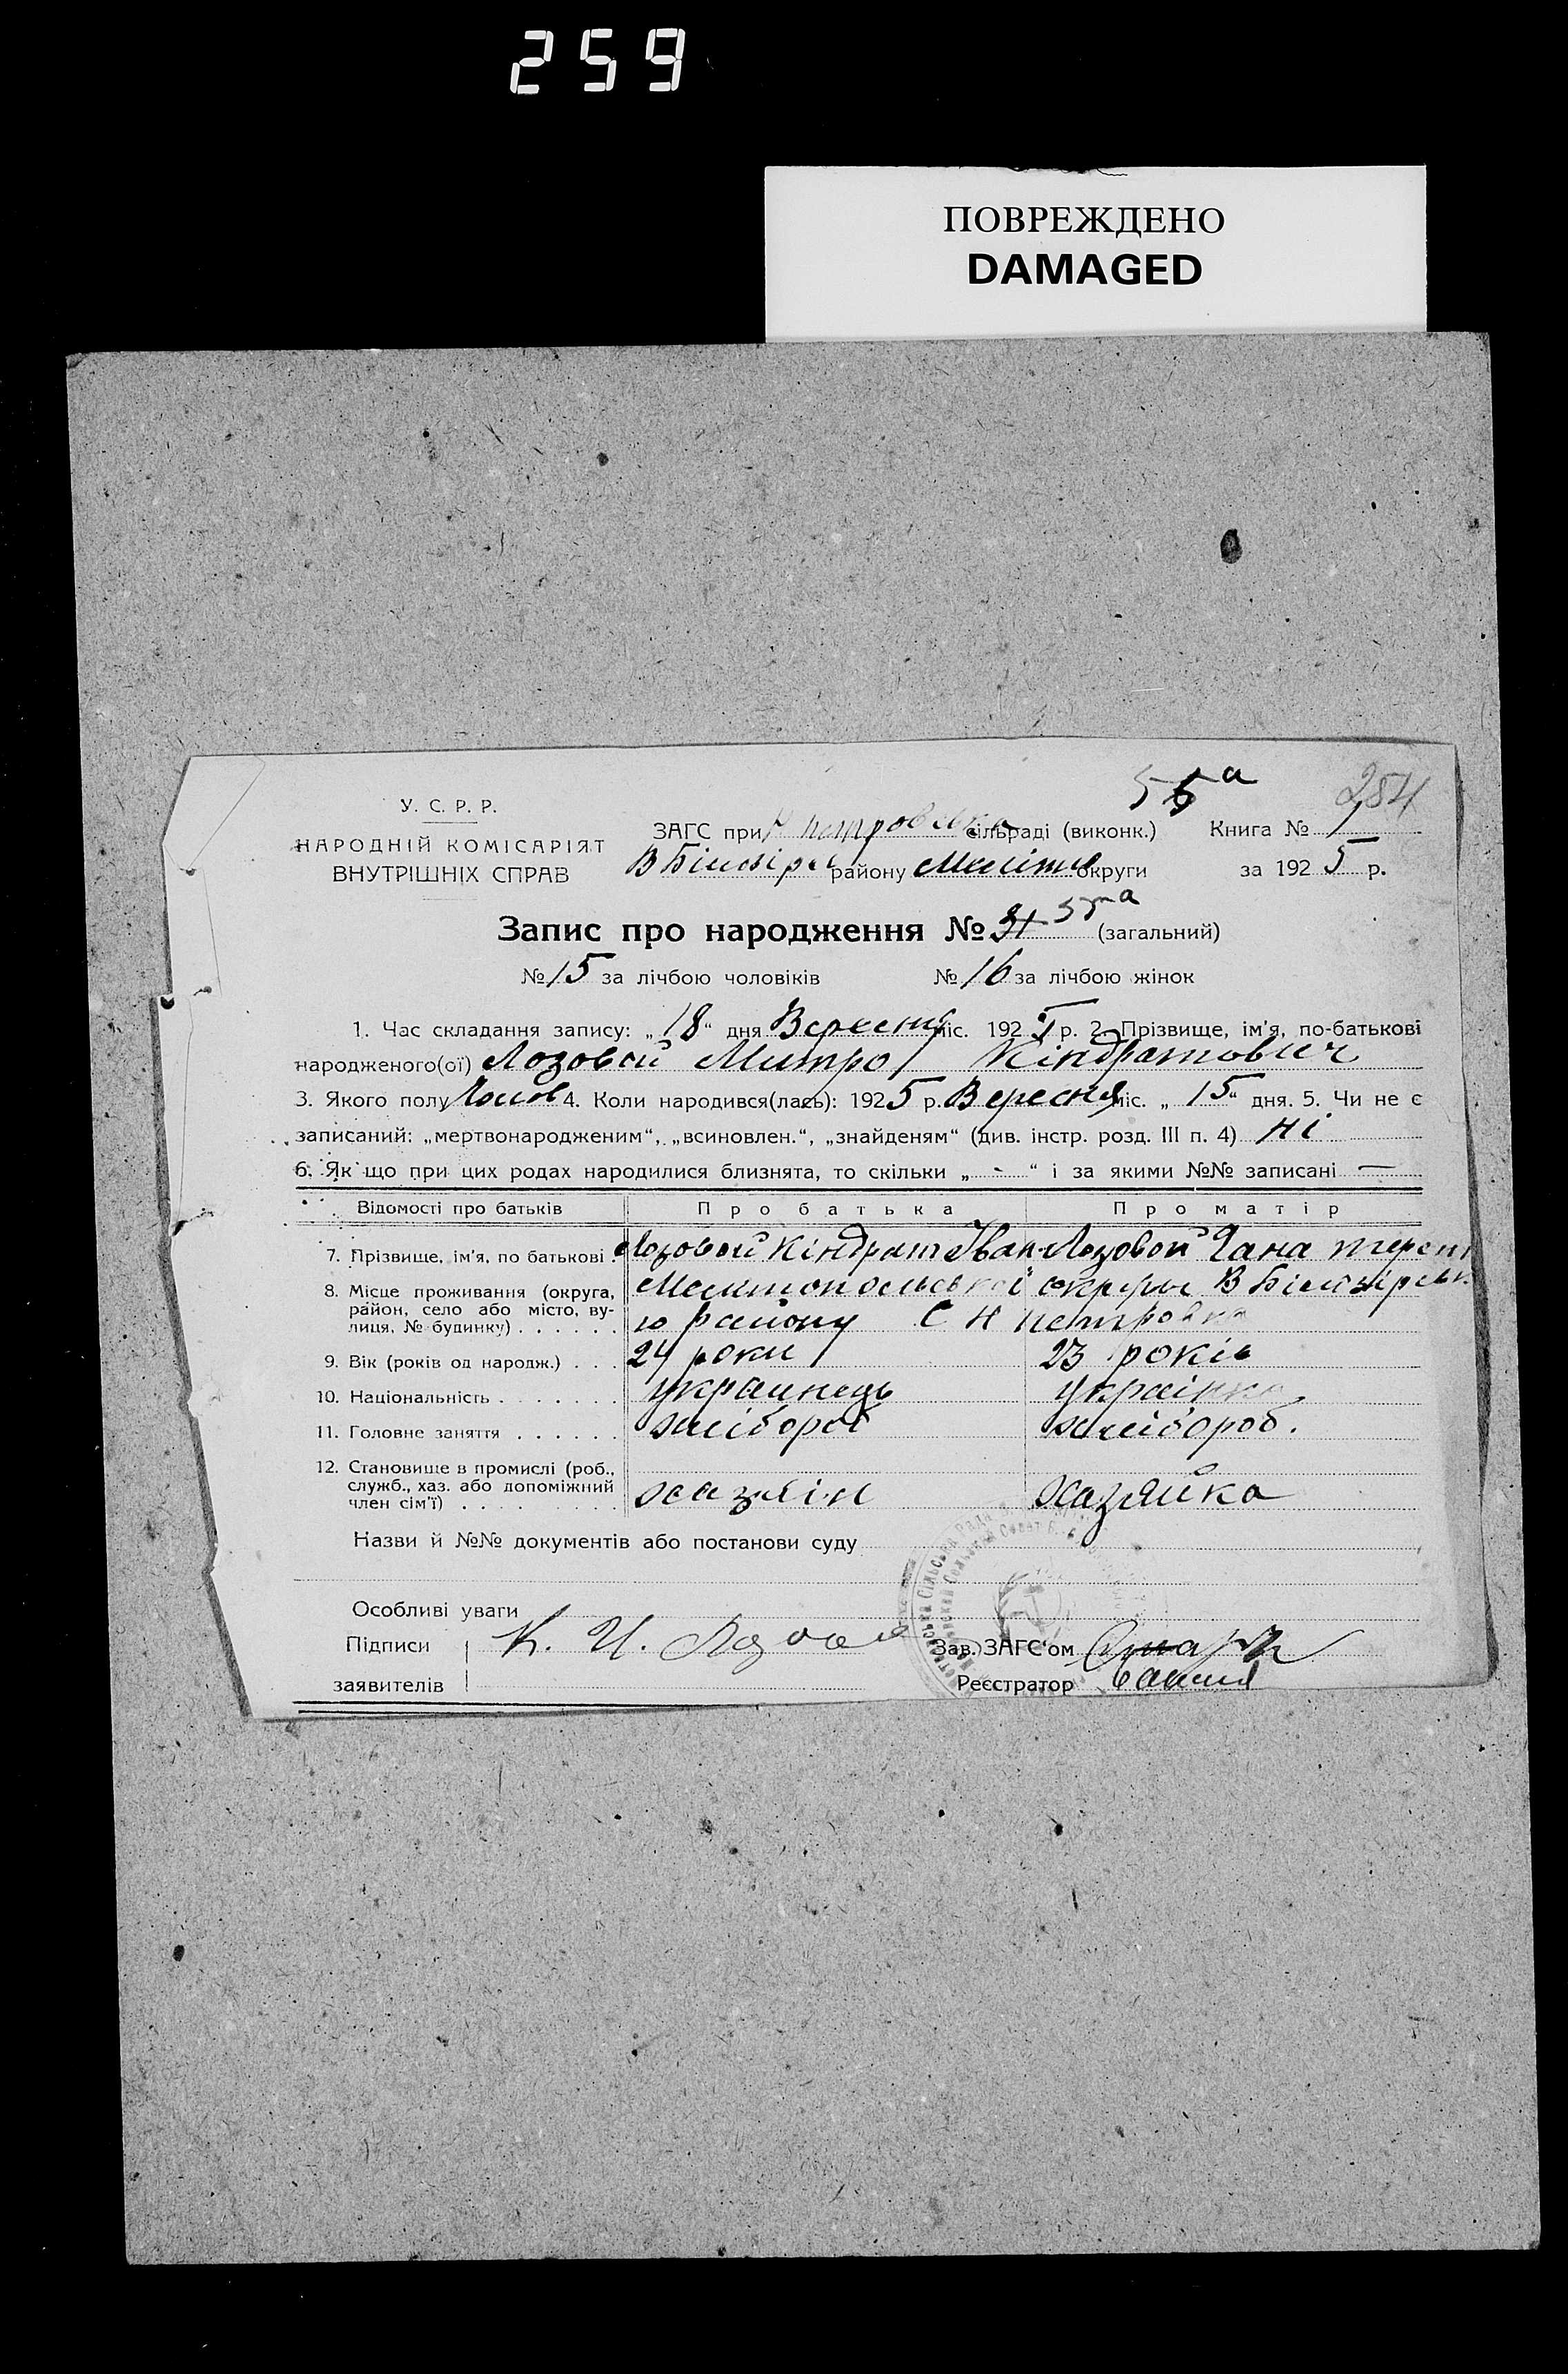 259
ПОВРЕЖДЕНО
DAMAGED
55а 284
У. С. Р. Р.
НАРОДНІЙ КОМІСАРІЯТ
ВНУТРІШНІХ СПРАВ
ЗАГС при Н петровська сільраді (виконк.) Книга № 1
В Білозір району Меліт округи за 1925 р.
Запис про народження № 31 55а (загальний)
№ 15 за лічбою чоловіків № 16 за лічбою жінок
1. Час складання запису: „18“ дня Вересня міс. 1925 р. 2. Прізвище, ім'я, по-батькові
народженого(ої) Лозовой Митро Кіндратович
3. Якого полу Чолов 4. Коли народився(лась): 1925 р. Вересня міс. „15“ дня. 5. Чи не є
записаний: „мертвонародженим“, „всиновлен.“, „знайденям“ (див. інстр. розд. III п. 4) Ні
6. Як що при цих родах народилися близнята, то скільки „ - “ і за якими №№ записані —
Відомості про батьків Про батька Про матір
7. Прізвище, ім'я, по батькові . Лозовой Кіндрат Іван Лозовой
8. Місце проживання (округа, район, село або місто, вулиця, № будинку) . . . . . . Мелитопольської округи В Білозірськ
го району С Н петровка
9. Вік (років од народж.) . . . 24 роки 23 років
10. Національність . . . . . . . украинець украінка
11. Головне заняття . . . . . . хлібороб хлібороб.
12. Становище в промислі (роб., служб., хаз. або допоміжний член сім'ї) . . . . . . . . хазяін хазяйка
Назви й №№ документів або постанови суду
Особливі уваги
Підписи К. И. Лозовой Зав. ЗАГС'ом
заявителів Реєстратор